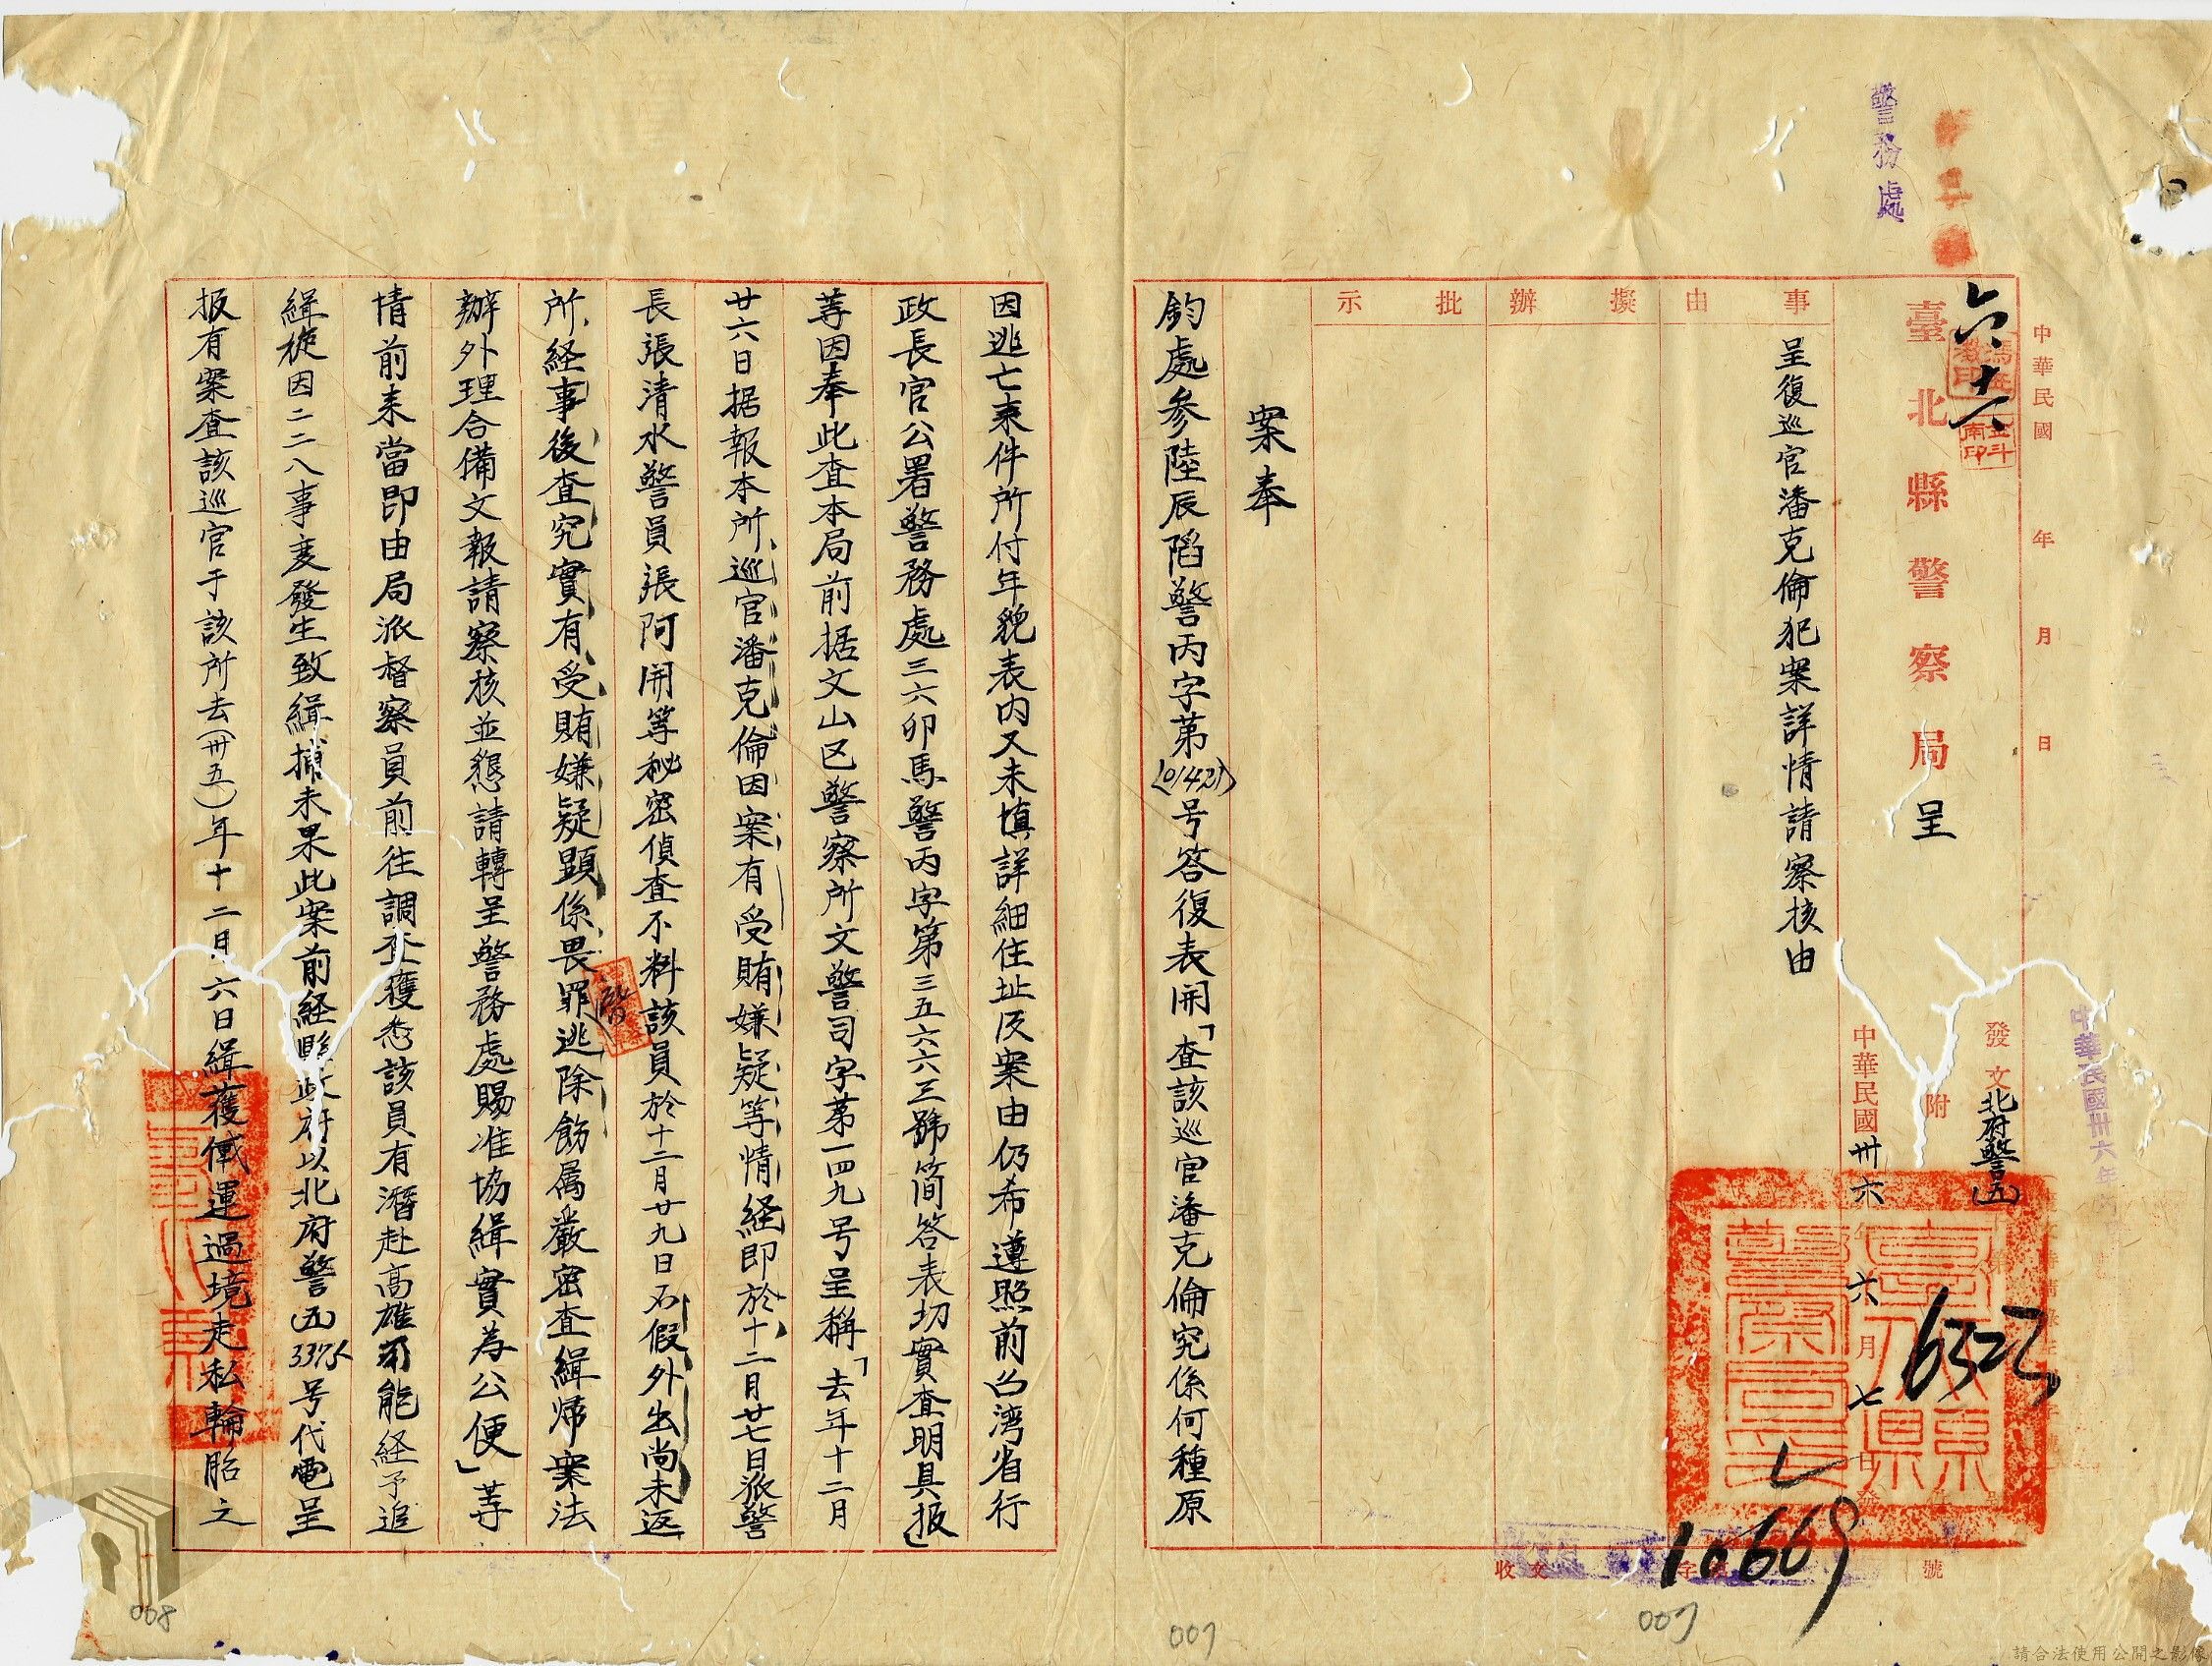 警務處
中華民國　年　月　日
六十六
臺北縣警察局呈
發文北府警(五)
附
6322
中華民國卅六年六月七日發
事由
呈復巡官潘克倫犯案詳情請察核由
擬辦
批示
案奉
鈞處參陸辰陷警丙字第(01425)号答復表開「查該巡官潘克倫究係何種原
因逃亡來件所付年貌表內又未填詳細住址及案由仍希遵照前台湾省行
政長官公署警務處三六卯馬警丙字第三五六六三號簡答表切實查明具报」
等因奉此查本局前据文山区警察所文警司字第一四九号呈稱「去年十二月
廿六日据報本所巡官潘克倫因案有受賄嫌疑等情経即於十二月廿七日派警
長張清水警員張阿開等秘密偵查不料該員於十二月廿九日不假外出尚未返
所経事後查究實有受賄嫌疑顕係畏罪潛逃除飭属嚴密查緝帰案法
辦外理合備文報請察核並懇請轉呈警務處賜准協緝實為公便」等
情前来當即由局派督察員前往調查獲悉該員有潛赴高雄可能経予追
緝旋因二二八事変發生致緝捕未果此案前経縣政府以北府警(五)3375号代電呈
报有案查該巡官于該所去(卅五)年十二月六日緝獲儎運過境走私輪胎之
收文　字第10669號
中華民國卅六年
007
007
008
請合法使用公開之影像